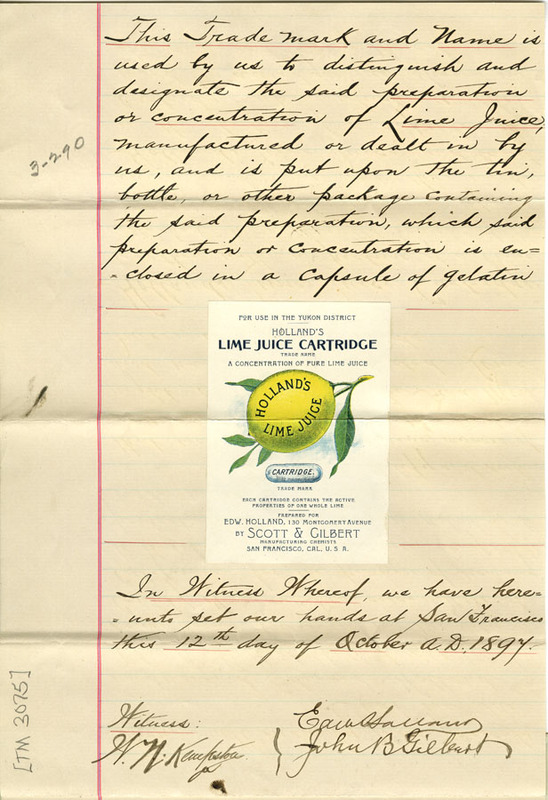 This Trade mark and Name is
used by us to distinguish and
designate the said preparation
or concentration of Lime Juice,
manufactured or dealt in by
us, and is put upon the tin,
bottle, or other package containing
the said preparation, which said
preparation or concentration is en=
=closed in a capsule of gelatin
3-290
FOR USE IN THE YUKON DISTRICT
HOLLAND'S
LIME JUICE CARTRIDGE
TRADE NAME
A CONCENTRATION OF PURE LIME JUICE
HOLLAND'S
LIME JUICE
CARTRIDGE.
TRADE MARK
EACH CARTRIDGE CONTAINS THE ACTIVE
PROPERTIES OF ONE WHOLE LIME
PREPARED FOR
EDW. HOLLAND, 130 MONTGOMERY AVENUE
BY SCOTT & GILBERT
MANUFACTURING CHEMISTS
SAN FRANCISCO, CAL., U. S. A.
In Witness Whereof, we have here=
=unto set our hands at San Francisco
this 12th day of October A.D. 1897.
[TM 3075]
Witness:
W. N. Kempston
Edw Holland
John B Gilbert